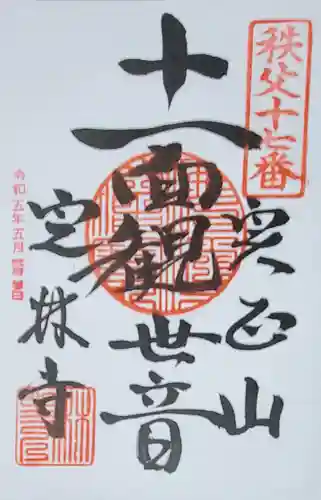 秩父十七番
實正山
十一面觀世音
定林寺
令和五年五月